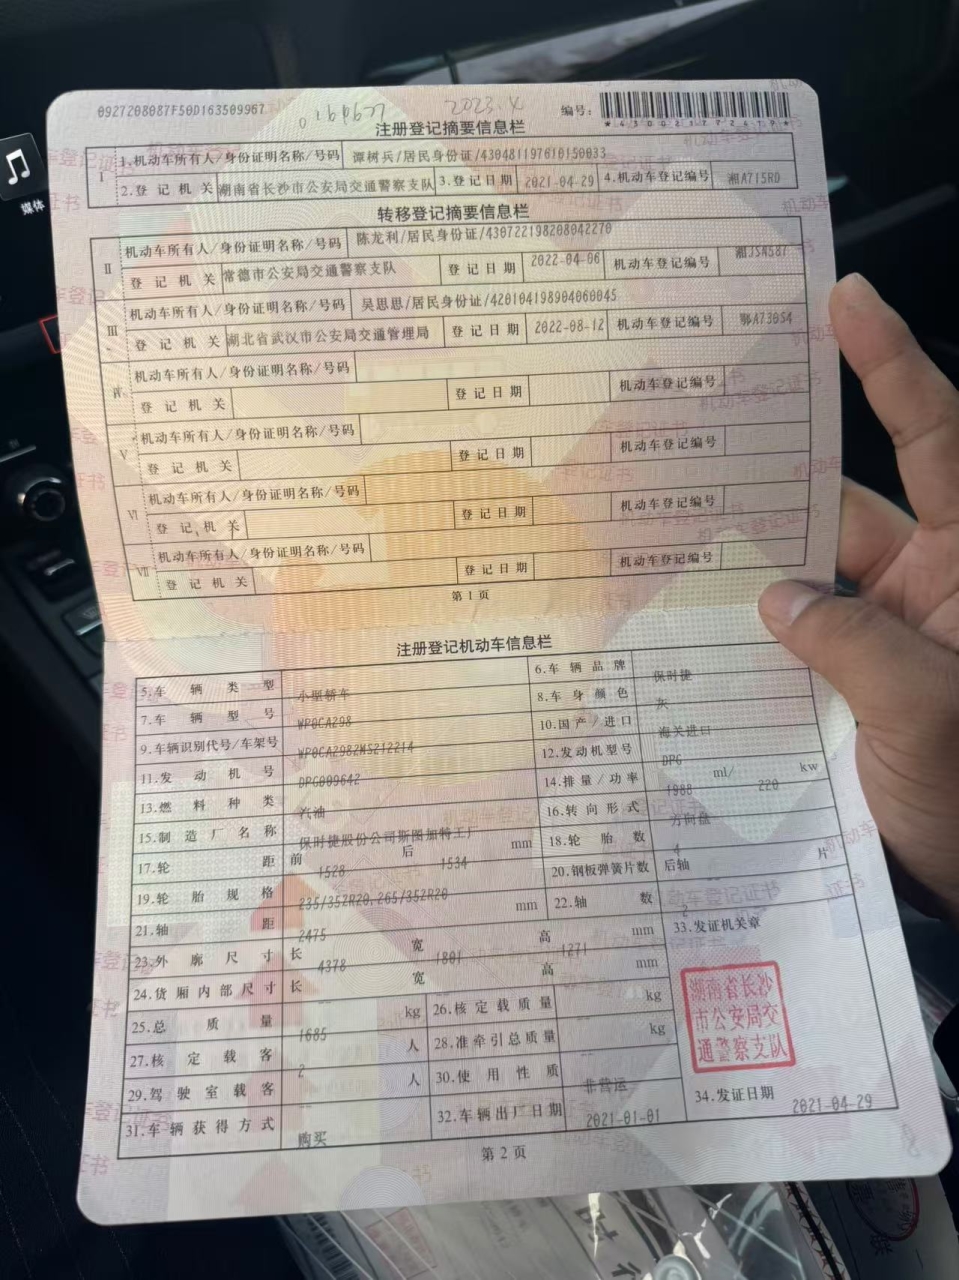 媒体
0927208087F50D163509967
2023.4
编号:
*430023292619*
注册登记摘要信息栏
Ⅰ 1.机动车所有人/身份证明名称/号码 谭树兵/居民身份证/430481197610150033
2.登记机关 湖南省长沙市公安局交通警察支队 3.登记日期 2021-04-29 4.机动车登记编号 湘A715R0
转移登记摘要信息栏
Ⅱ 机动车所有人/身份证明名称/号码 陈龙利/居民身份证/430722198208042270
登记机关 常德市公安局交通警察支队 登记日期 2022-04-06 机动车登记编号 湘J5N587
Ⅲ 机动车所有人/身份证明名称/号码 吴思思/居民身份证/420104198904060045
登记机关 湖北省武汉市公安局交通管理局 登记日期 2022-08-12 机动车登记编号 鄂A730S4
Ⅳ 机动车所有人/身份证明名称/号码
登记机关 登记日期 机动车登记编号
Ⅴ 机动车所有人/身份证明名称/号码
登记机关 登记日期 机动车登记编号
Ⅵ 机动车所有人/身份证明名称/号码
登记机关 登记日期 机动车登记编号
Ⅶ 机动车所有人/身份证明名称/号码
登记机关 登记日期 机动车登记编号
第1页
注册登记机动车信息栏
5.车辆类型 小型轿车 6.车辆品牌 保时捷
7.车辆型号 WP0CA298 8.车身颜色 灰
9.车辆识别代号/车架号 WP0CA2982MS212214 10.国产/进口 海关进口
11.发动机号 DPG009642 12.发动机型号 DPG
13.燃料种类 汽油 14.排量/功率 1988 ml/ 220 kw
15.制造厂名称 保时捷股份公司斯图加特工厂 16.转向形式 方向盘
17.轮距 前 1528 后 1534 mm 18.轮胎数 4
19.轮胎规格 235/35ZR20,265/35ZR20 20.钢板弹簧片数 后轴 片
21.轴距 2475 mm 22.轴数 2
23.外廓尺寸 长 4378 宽 1801 高 1271 mm
24.货厢内部尺寸 长 宽 高 mm
25.总质量 1685 kg 26.核定载质量 kg
27.核定载客 2 人 28.准牵引总质量 kg
29.驾驶室载客 人 30.使用性质 非营运
31.车辆获得方式 购买 32.车辆出厂日期 2021-01-01
33.发证机关章
湖南省长沙
市公安局交
通警察支队
34.发证日期 2021-04-29
第2页